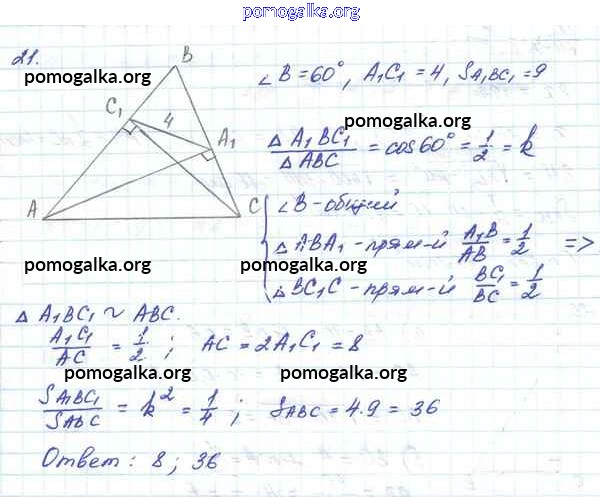 pomogalka.org
21.
pomogalka.org
B
C₁
4
A₁
A
C
∠B = 60°, A₁C₁ = 4, S A₁BC₁ = 9
pomogalka.org
△A₁BC₁ / △ABC = cos 60° = 1/2 = k
pomogalka.org
∠B - общий
△ABA₁ - прям-й A₁B/AB = 1/2 =>
pomogalka.org pomogalka.org
△BC₁C - прям-й BC₁/BC = 1/2
△ A₁BC₁ ~ ABC.
A₁C₁/AC = 1/2 ; AC = 2A₁C₁ = 8
pomogalka.org pomogalka.org
S A₁BC₁ / S ABC = k² = 1/4 ; S ABC = 4·9 = 36
Ответ: 8 ; 36
pomogalka.org pomogalka.org